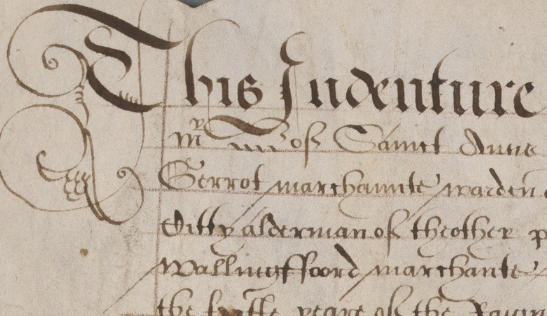 This Indenture
of Sainct Annis
Gerrot marchaunte warden
Citty alderman of theother p
Wallingffoord marchante
the yeare of the Raign